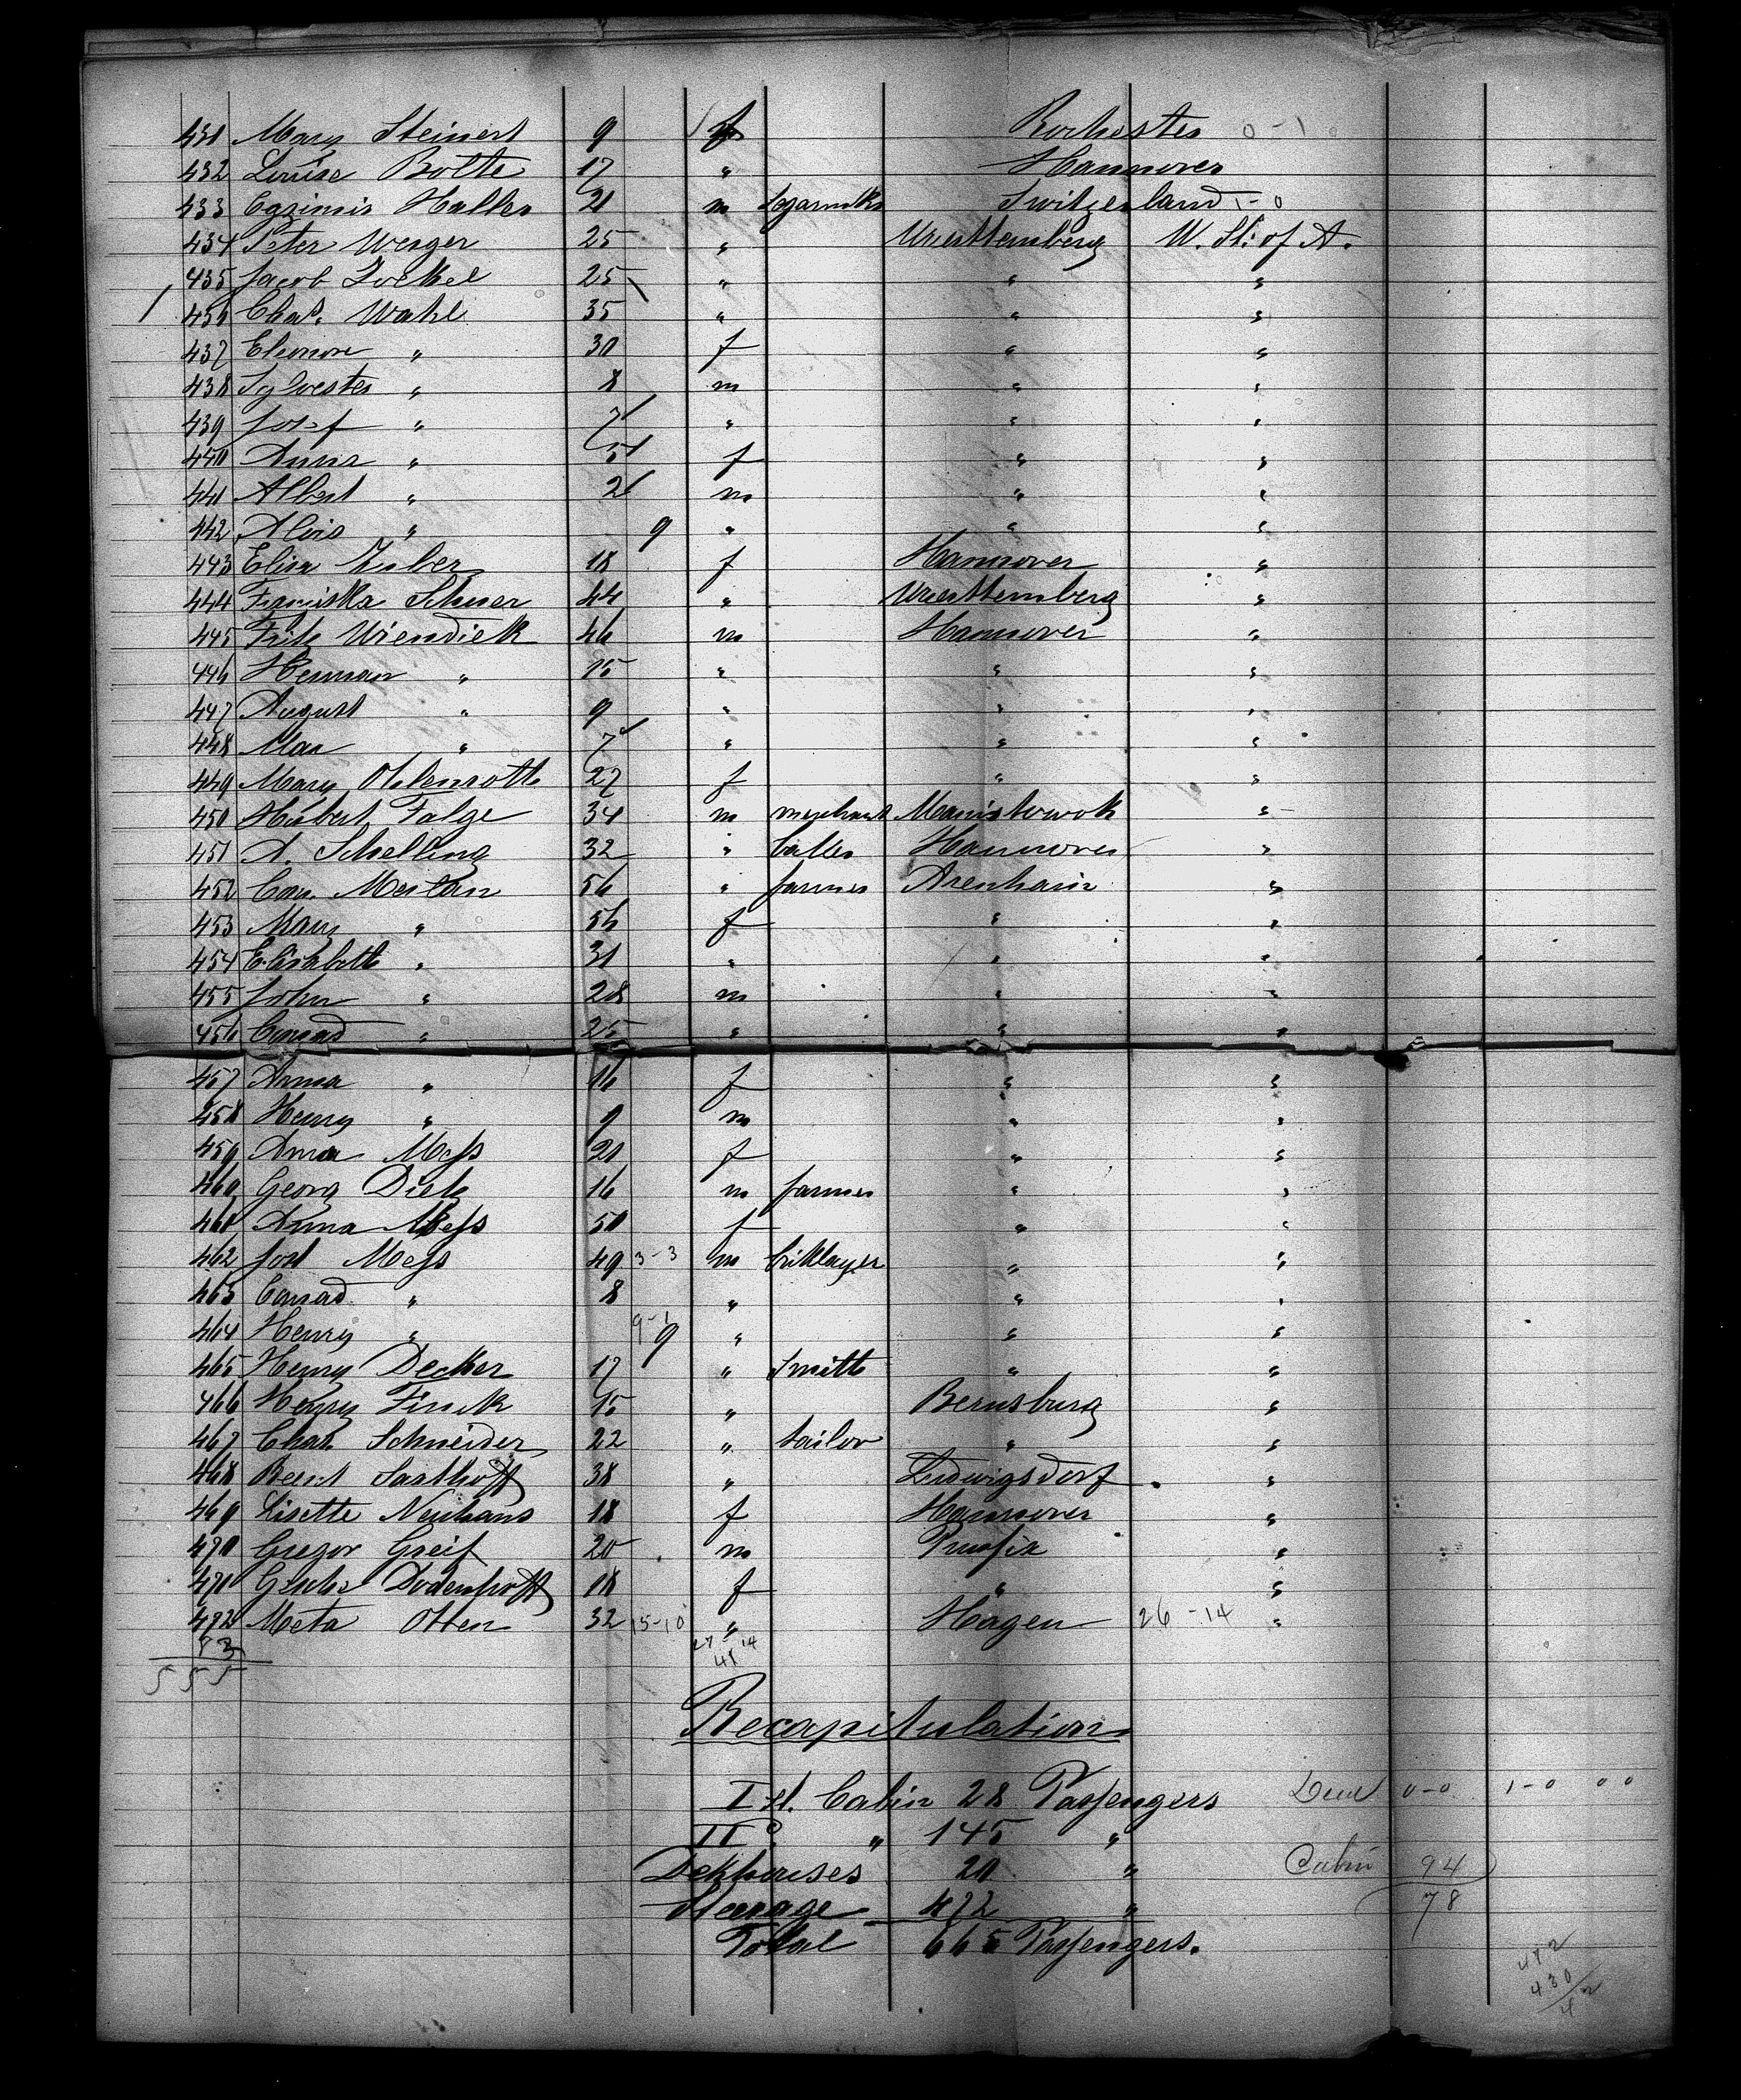 431 Mary Steinert 9 f Rochester 0-1
432 Louise Bolte 17 " Hannover
433 Haller 21 m Switzerland 1-0
434 Peter Werger 25 " Wuerttemberg U. St: of A.
435 Jacob 25 " " "
436 Chas. Wahl 35 " " "
437 Eleonore " 30 f " "
438 Sylvester " 8 m " "
439 Josef " 7 " " "
440 Anna " 5 f " "
441 Albert " 2 m " "
442 Alois " 9 " " "
443 Elisa Huber 18 f Hannover "
444 Franziska Scheuer 44 " Wuerttemberg "
445 Fritz Wiendieck 46 m Hannover "
446 Herman " 15 " " "
447 August " 9 " " "
448 Max " 7 " " "
449 Mary Ohlenroth 27 f " "
450 Hubert Falge 34 m merchant Manistowok "
451 A. Schelling 32 " Hannover "
452 56 " farmer "
453 Mary " 56 f " "
454 Elisabeth " 31 " " "
455 John " 28 m " "
456 Conrad " 25 " " "
457 Anna " 16 f " "
458 Henry " 9 m " "
459 Anna Mess 21 f " "
460 Georg Dietz 16 m farmer " "
461 Anna Mess 50 f " "
462 Jost Mess 49 3-3 m briklayer " "
463 Conrad " 8 " " "
464 Henry " 9-1 9 " " "
465 Henry Decker 17 " Smith " "
466 Henry Finck 15 " Bernsburg "
467 Chas. Schneider 22 " tailor " "
468 Bernt Sasthoff 38 " Ludwigsdorf "
469 Lisette Neuhaus 18 f Hannover "
470 Gregor Greif 20 m Prussia "
471 Gesche Dodenhoff 18 f " "
472 Meta Otten 32 15-10 " Hagen 26-14 "
83 27 14
555 41
Recapitulation
I st. Cabin 28 Passengers 0-0 1-0 00
II " 145 "
Dekhouses 20 " Cabin 94
Steerage 472 " 78
Total 665 Passengers.
472
430
42